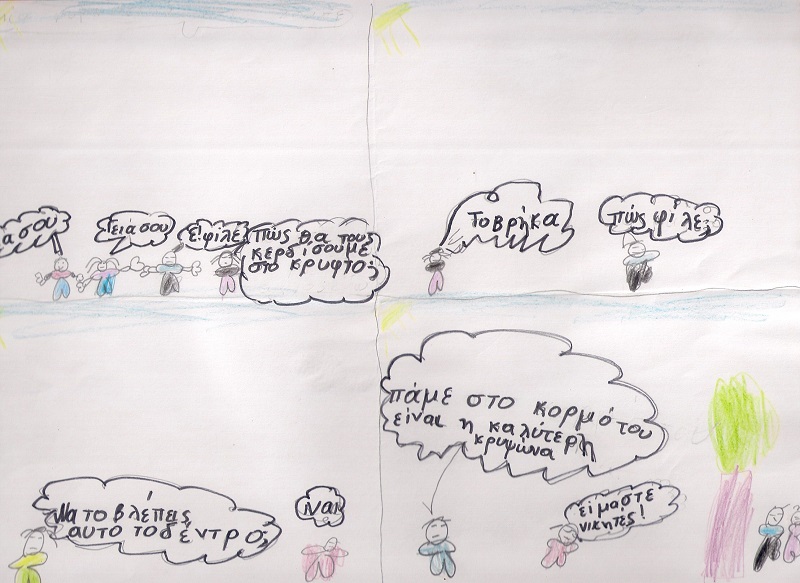 α σου
Γειά σου
Ε! φιλε
Πώς θα τους
κερδίσουμε
στο κρυφτό;
Το βρήκα
πώς φίλε;
Να το βλέπεις
αυτο το δέντρο;
ναι
πάμε στο κορμό του
είναι η καλύτερη
κρυψώνα
είμαστε
νικητές!